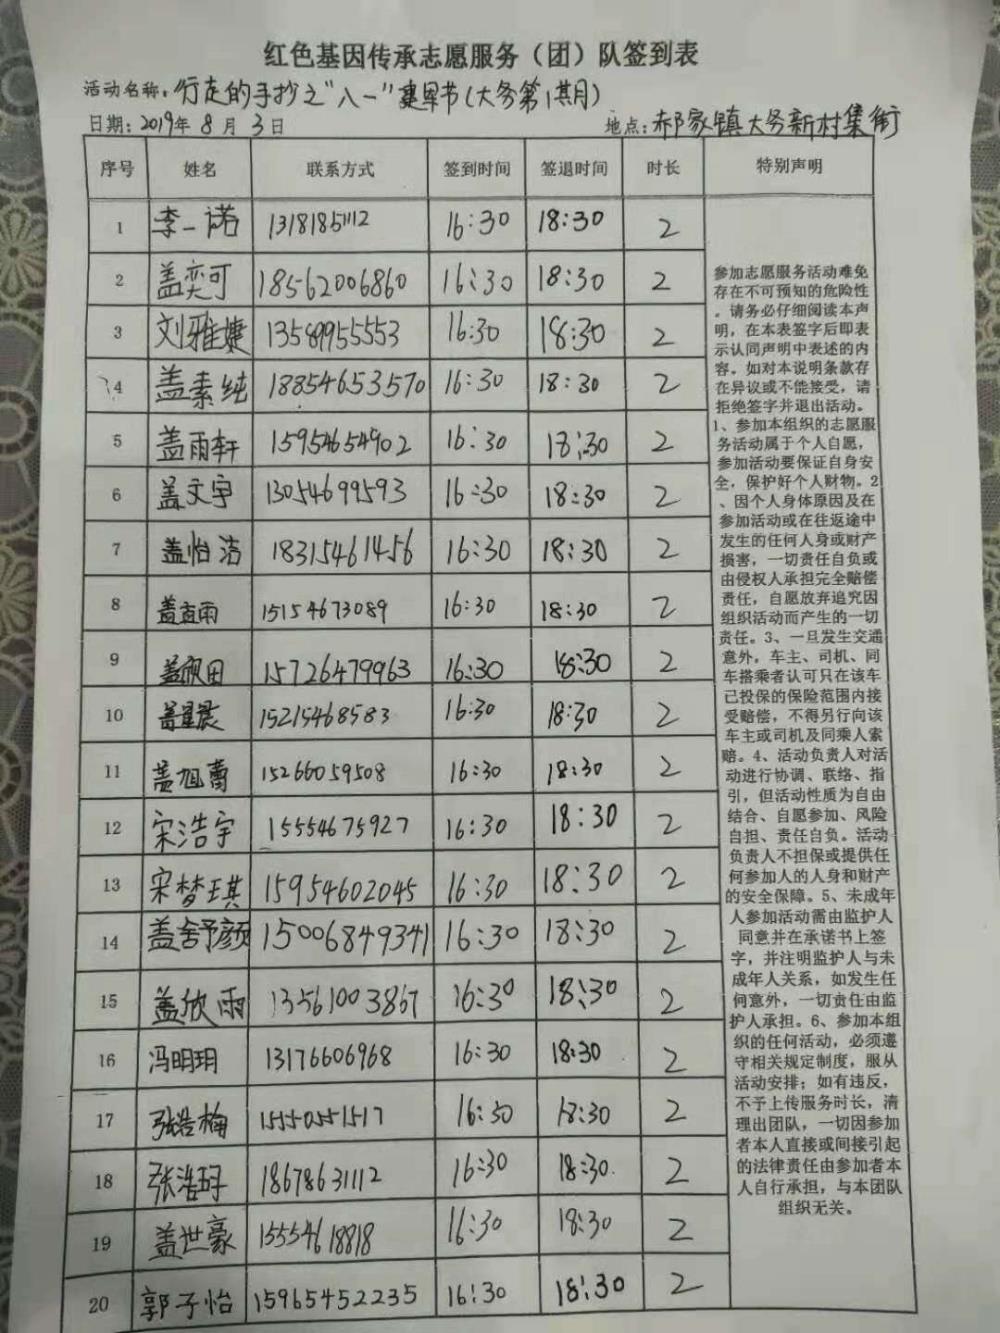 红色基因传承志愿服务（团）队签到表
活动名称：行走的手抄之"八一"建军节(大务第1期)
日期：2019年8月3日 地点：郝家镇大务新村集街
序号 姓名 联系方式 签到时间 签退时间 时长 特别声明
1 李一诺 13181851112 16:30 18:30 2
2 盖奕可 18562006860 16:30 18:30 2
3 刘雅婕 13589955553 16:30 18:30 2
4 盖素纯 18854653570 16:30 18:30 2
5 盖雨轩 15954654902 16:30 18:30 2
6 盖文宇 13054699593 16:30 18:30 2
7 盖怡洁 18315461456 16:30 18:30 2
8 盖雨 15154673089 16:30 18:30 2
9 盖欣田 15726479963 16:30 18:30 2
10 盖星晨 15215468583 16:30 18:30 2
11 盖旭蕾 15266059508 16:30 18:30 2
12 宋浩宇 15554675927 16:30 18:30 2
13 宋梦琪 15954602045 16:30 18:30 2
14 盖舒颜 15006849341 16:30 18:30 2
15 盖欣雨 13561003867 16:30 18:30 2
16 冯明玥 13176606968 16:30 18:30 2
17 张浩楠 15550551517 16:30 18:30 2
18 张浩 18678631112 16:30 18:30 2
19 盖世豪 15554618818 16:30 18:30 2
20 郭子怡 15965452235 16:30 18:30 2
参加志愿服务活动难免
存在不可预知的危险性
。请务必仔细阅读本声
明，在本表签字后即表
示认同声明中表述的内
容。如对本说明条款存
在异议或不能接受，请
拒绝签字并退出活动。
1、参加本组织的志愿服
务活动属于个人自愿，
参加活动要保证自身安
全，保护好个人财物。2
、因个人身体原因及在
参加活动或在往返途中
发生的任何人身或财产
损害，一切责任自负或
由侵权人承担完全赔偿
责任，自愿放弃追究因
组织活动而产生的一切
责任。3、一旦发生交通
意外，车主、司机、同
车搭乘者认可只在该车
已投保的保险范围内接
受赔偿，不得另行向该
车主或司机及同乘人索
赔。4、活动负责人对活
动进行协调、联络、指
引，但活动性质为自由
结合、自愿参加、风险
自担、责任自负。活动
负责人不担保或提供任
何参加人的人身和财产
的安全保障。5、未成年
人参加活动需由监护人
同意并在承诺书上签
字，并注明监护人与未
成年人关系，如发生任
何意外，一切责任由监
护人承担。6、参加本组
织的任何活动，必须遵
守相关规定制度，服从
活动安排；如有违反，
不予上传服务时长，清
理出团队，一切因参加
者本人直接或间接引起
的法律责任由参加者本
人自行承担，与本团队
组织无关。